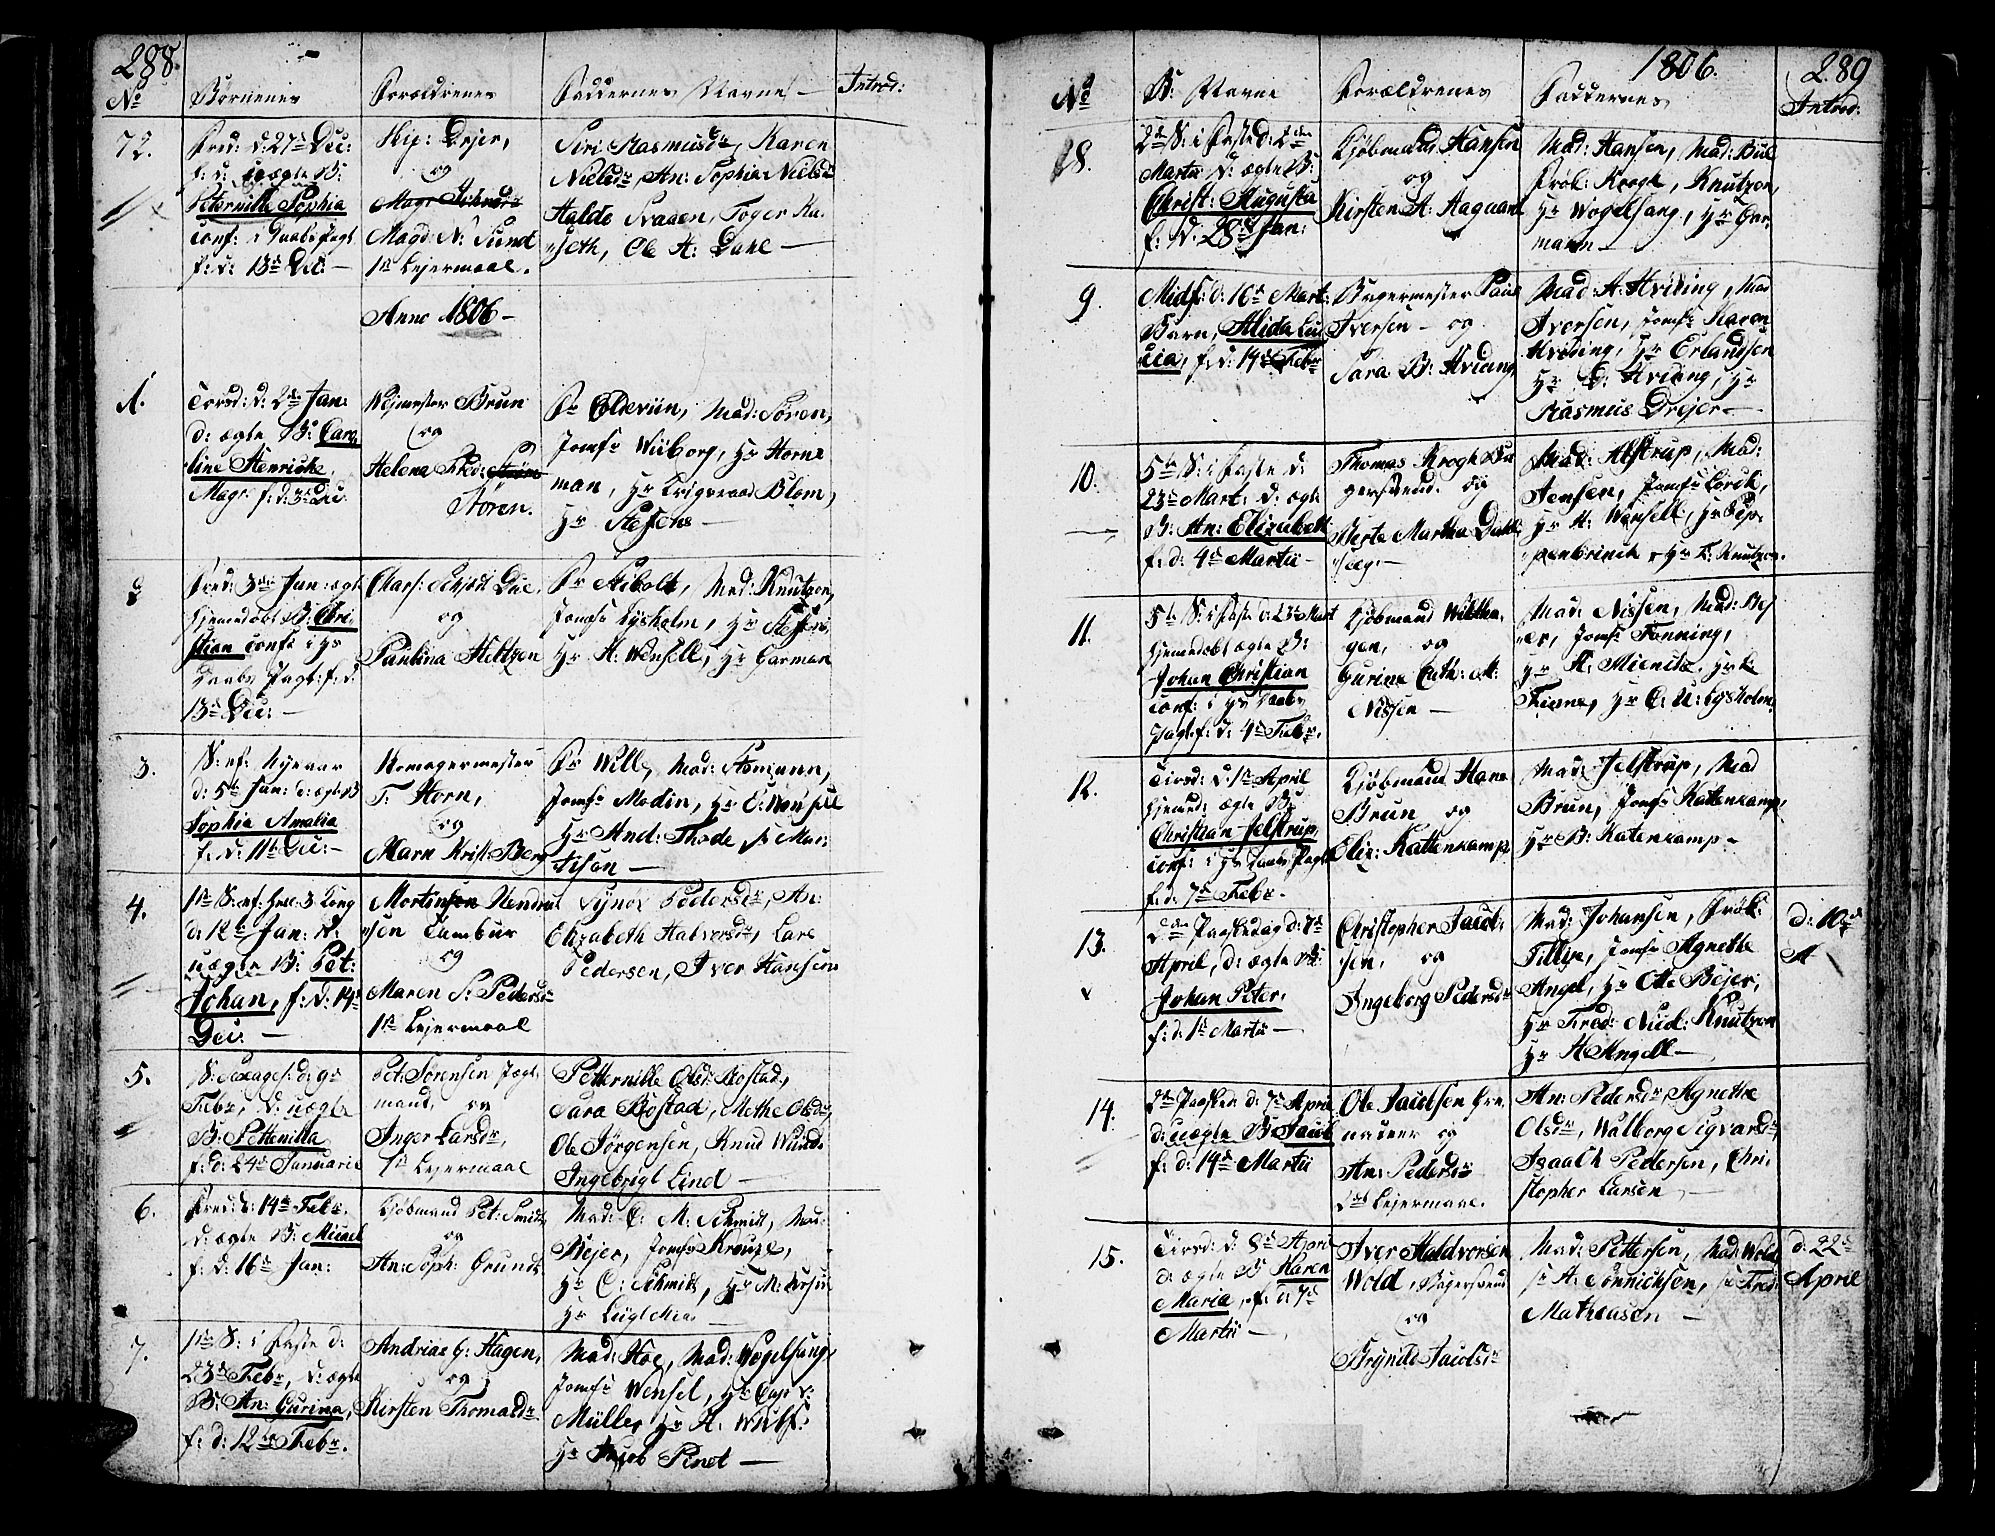 288.
No
Børnenes
Forældrenes
Faddernes Navne
Introd:
72.
Fred: d: 27de Dec:
f: d: uægte B:
Peternille Sophia
conf: i Daabs Pagt
f: d: 13de Dec:
Skip: Drejer,
og
Magd: N: Sund
1te Lejermaal.
Siri Rasmusdr, Karen
Nielsdr, An: Sophia Nielsdr
Halde Svaaen, Toger Ka-
seth, Ole A: Dahl
Anno 1806
1.
Torsd: d: 2den Jan:
d: ægte B: Caro-
line Henricke
Magr: f: d: 3de Dec:
Vejmester Brun
og
Helena Fred:
Støren.
Fr Coldeviin, Mad: Støren,
Jomfr Wiiborg, Hr Horne
man, Hr Krigsraad Blom,
Hr Steffens
2
Fred: 3die Jan: ægte
hjemedøbt B: Chri-
stian conf: i hs
Daabs Pagt: f: d:
13de Dec:
Chars: Schiøtt Due,
og
Paulina Heltzen
Fr Stibolt, Mad: Knutzon,
Jomfr Lysholm, Hr Steffens
Hr H: Wensell, Hr Garman
3.
S: ef: Nyeaar
d: 5te Jan: d: ægte B
Sophia Amalia
f: d: 11te Dec:
F: Horn,
og
Maren Krist: Berg
Fr Will, Mad: Asmunn,
Jomfr Modin, Hr C: Wensell
Hr And: Thode, Mar-
tisen
4.
1te S: ef: Hel: 3 Kong
d: 12te Jan: d:
uægte B: Pet:
Johan, f: d: 14de
Dec:
Mortinsen Hendric
sen Tambur
og
Maren S: Pedersdr
1te Lejermaal
Synøv Pedersdr, An:
Elizabeth Halvorsdr, Lars
Pedersen, Iver Hansen
5.
S: Sexages: d: 9de
Febr, d: uægte
B: Pettenilla
f: d: 24de Januarii
Pet: Sørensen Jægt-
mand, og
Inger Larsdr,
1te Lejermaal
Petternille Olsdr Bostad,
Sara Bostad, Methe Olsdr,
Ole Jørgensen, Knud Wind
Ingebrigt Lind
6.
Fred: d: 14de Febr.
d: ægte B: Michael
f: d: 16de Jan:
Kjøbmand Pet: Smidt
og
An: Soph: Grundt
Mad: C: M: Schmidt, Mad:
Bejer, Jomfr Krouse,
Hr C: Schmidt, Hr M:
Hr
7.
1te S: i Faste d:
23de Febr, d: ægte
B: An: Gurina,
f: d: 12te Febr.
Andrias G: Hagen,
og
Kirsten Thomasdr
Mad: Hoe, Mad: Vogelsang,
Jomfr Wensel, Hr Cap v:
Müller, Hr A: Wulf
Hr Jacob Finet
1806.
289
No
B: Navne
Forældrenes
Faddernes
Introd:
8.
2de S: i Faste d: 2den
Martii d: ægte B:
Christ: Augusta
f: d: 28de Jan:
Kjøbmand Hansen
og
Kirsten A: Aagaard
Mad: Hansen, Mad: Bull
Frøk: Krogh, Knutzon,
Hr Wogelsang, Hr Gar-
mann
9.
Midf: d: 16de Mart:
Barn, Alida Lu-
cia, f: d: 14de Febr
Bygermester Paul
Iversen og
Sara B: Hviding
Mad: A: Hviding, Mad
Iversen, Jomfr Karen
Hviding, Hr Erlandsen
Hr D: Hviding, Hr
Rasmus Drejer
10.
5te S: i Faste d:
23de Mart: d: ægte
B: An: Elizabeth
f: d: 4de Martii
Thomas Krogh Bor
gersvend og
Birte Martha Dahl-
Mad: Alstrup, Mad:
Jensen, Jomfr Lorck,
Hr H: Wensell, Hr Pip-
penbrinck, Hr F: Knutzon.
11.
5te S: i Faste d: 23de Mart
hjemedøbt ægte B:
Johan Christian
conf: i hs Daabs
Pagt: f: d: 4de Febr.
Kjøbmand Wilthe
gen, og
Gurine Cath: M:
Nissen
Mad: Nissen, Mad: Bej
er, Jomfr Fonning,
Hr H: Mienitz, Hr L:
Finne, Hr C: N: Lysholm
12.
Tirsd: d: 1te April
hjemed: ægte B:
Christian Jelstrup,
conf: i hs Daabs Pagt
f: d: 7de Febr.
Kjøbmand Hans
Brun og
Eliz: Kattenkamp
Mad: Jelstrup, Mad
Brun, Jomfr Kattenkamp,
Hr B: Katenkamp
13.
2den Paaskedag d: 7de
April, d: ægte B:
Johan Peter,
f: d: 1te Martii
Christopher Jacob-
sen, og
Ingeborg Pedersdr
Mad: Johansen, Frøk:
Tillye, Jomfr Agnethe
Angel, Hr Ole Bejer,
Hr Fred: Nicol: Knutzon
Hr H Angell
d: 10de
A
14.
2de Paasked: d: 7de April
d: uægte B: Jacob
f: d: 14de Martii
Ole Jacobsen Gre-
nadeer og
An: Pedersdr
2det Lejermaal.
An: Pedersdr, Agnethe
Olsdr, Walborg Sigvardsdr,
Isaach Pedersen, Chri-
stopher Larsen
15.
Tirsd: d: 8de April
d: ægte B Karen
Maria, f: d: 7de
Martii
Iver Haldvorsen
Wold, Bøgersvend
og
Brynild Jacobsdr
Mad: Pettersen, Mad: Wold
A: Sønnichsen, Fred:
Matheusen
d: 22de
April